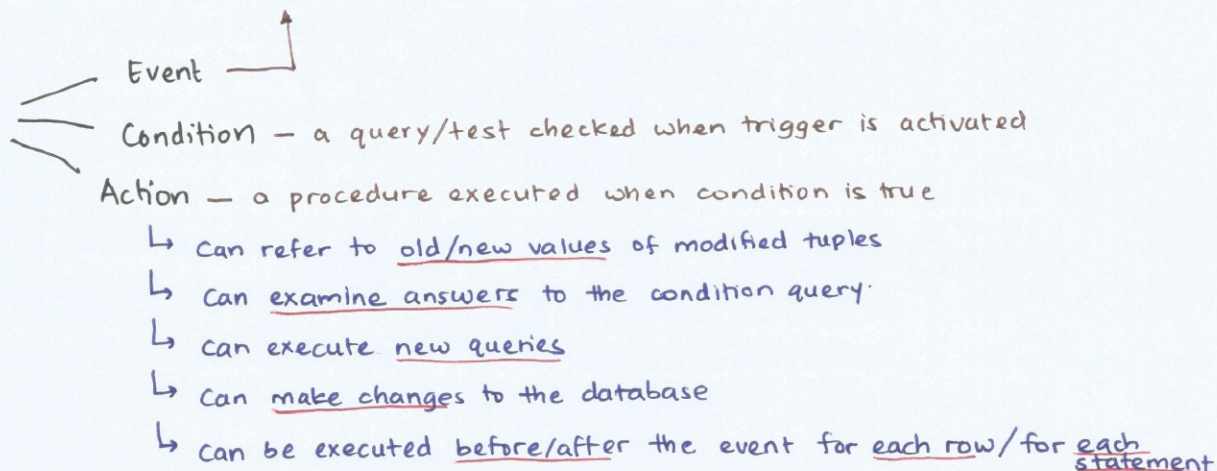 Event
Condition – a query/test checked when trigger is activated
Action – a procedure executed when condition is true
↳ can refer to old/new values of modified tuples
↳ can examine answers to the condition query.
↳ can execute new queries
↳ can make changes to the database
↳ can be executed before/after the event for each row/for each
statement